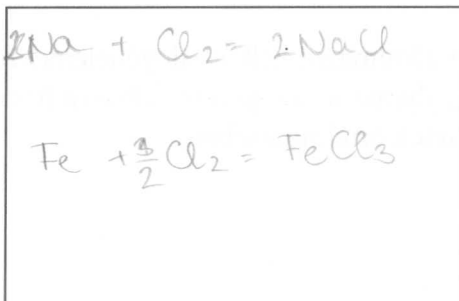 2Na + Cl₂ = 2.NaCl
Fe + 3/2 Cl₂ = FeCl₃